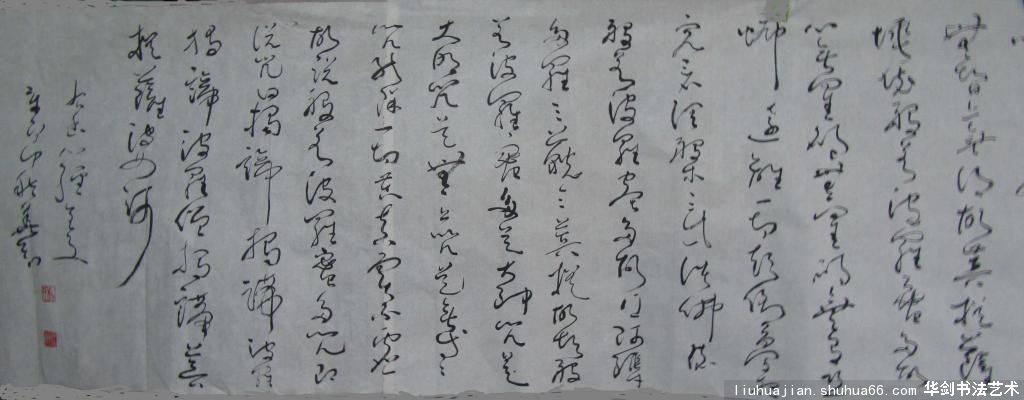 無智亦無得故菩提薩
埵依般若波羅蜜多故
心無罣礙無罣礙無有恐
怖遠離一切顛倒夢想
究竟涅槃三世諸佛依
般若波羅蜜多故得阿耨
多羅三藐三菩提故知般
若波羅蜜多是大神咒是
大明咒是無上咒是無等等
咒能除一切苦真實不虛
故說般若波羅蜜多咒即
說咒曰揭諦揭諦波羅
揭諦波羅僧揭諦菩
提薩婆訶
心經
辛卯秋華劍
liuhuajian.shuhua66.com 华剑书法艺术